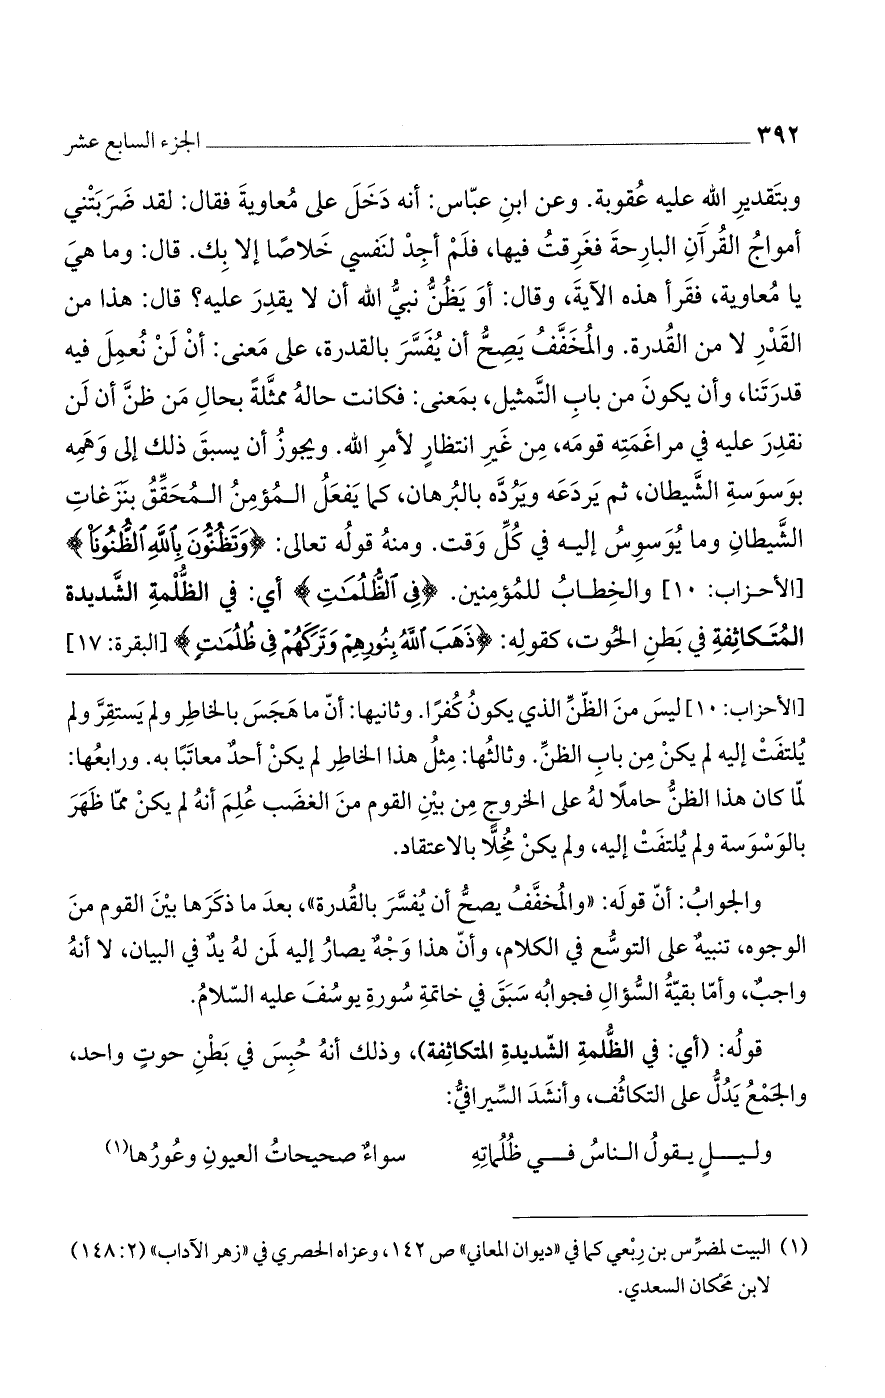 ٣٩٢ الجزء السابع عشر
وبتَقديرِ الله عليه عُقوبة. وعن ابنِ عبّاس: أنه دَخَلَ على مُعاويةَ فقال: لقد ضَرَبَتْني
أمواجُ القُرآنِ البارِحةَ فغَرِقتُ فيها، فلَمْ أجِدْ لنَفسي خَلاصًا إلا بِك. قال: وما هيَ
يا مُعاوية، فقَرأ هذه الآيةَ، وقال: أوَ يَظُنُّ نبيُّ الله أن لا يقدِرَ عليه؟ قال: هذا من
القَدْرِ لا من القُدرة. والمُخَفَّفُ يَصِحُّ أن يُفَسَّرَ بالقدرة، على مَعنى: أنْ لَنْ نُعمِلَ فيه
قدرَتَنا، وأن يكونَ من بابِ التَّمثيل، بمَعنى: فكانت حالهُ ممثَّلةً بحالِ مَن ظنَّ أن لَن
نقدِرَ عليه في مراغَمَتِه قومَه، مِن غَيرِ انتظارٍ لأمرِ الله. ويجوزُ أن يسبقَ ذلك إلى وَهَمِه
بوَسوَسةِ الشَّيطان، ثم يَردَعَه ويَرُدَّه بالبُرهان، كما يَفعَلُ المُؤمِنُ المُحَقِّقُ بنَزَغاتِ
الشَّيطانِ وما يُوَسوِسُ إليه في كُلِّ وَقت. ومنهُ قولُه تعالى: ﴿وَتَظُنُّونَ بِٱللَّهِ ٱلظُّنُونَا۠﴾
[الأحزاب: ١٠] والخِطابُ للمُؤمِنين. ﴿فِى ٱلظُّلُمَٰتِ﴾ أي: في الظُّلْمةِ الشَّديدة
المُتَكاثِفةِ في بَطنِ الحُوت، كقولِه: ﴿ذَهَبَ ٱللَّهُ بِنُورِهِمْ وَتَرَكَهُمْ فِى ظُلُمَٰتٍ﴾ [البقرة: ١٧]
[الأحزاب: ١٠] ليسَ منَ الظّنِّ الذي يكونُ كُفرًا. وثانيها: أنّ ما هَجَسَ بالخاطِر ولم يَستقِرَّ ولم
يُلتفَتْ إليه لم يكنْ مِن بابِ الظنِّ. وثالثُها: مِثلُ هذا الخاطِر لم يكنْ أحدٌ معاتَبًا به. ورابعُها:
لمّا كان هذا الظنُّ حاملًا لهُ على الخروج مِن بيْنِ القوم منَ الغضَب عُلِمَ أنهُ لم يكنْ ممّا ظَهَرَ
بالوَسْوَسة ولم يُلتفَتْ إليه، ولم يكنْ مُخِلًّا بالاعتقاد.
والجوابُ: أنّ قولَه: «والمُخفَّفُ يصحُّ أن يُفسَّرَ بالقُدرة»، بعدَ ما ذكَرَها بيْنَ القوم منَ
الوجوه، تنبيهٌ على التوسُّع في الكلام، وأنّ هذا وَجْهٌ يصارُ إليه لمَن لهُ يدٌ في البيان، لا أنهُ
واجبٌ، وأمّا بقيّةُ السُّؤالِ فجوابُه سَبَقَ في خاتمةِ سُورةِ يوسُفَ عليه السّلامُ.
قولُه: (أي: في الظُّلمةِ الشّديدةِ المتكاثِفة)، وذلك أنهُ حُبِسَ في بَطْنِ حوتٍ واحد،
والجَمْعُ يَدُلُّ على التكاثُف، وأنشَدَ السِّيرافيُّ:
وليلٍ يقولُ الناسُ في ظُلُماتِهِ سواءٌ صحيحاتُ العيونِ وعُورُها(١)
(١) البيت لمضرِّس بن رِبْعي كما في «ديوان المعاني» ص ١٤٢، وعزاه الحصري في «زهر الآداب» (٢: ١٤٨)
لابن مَحْكان السعدي.